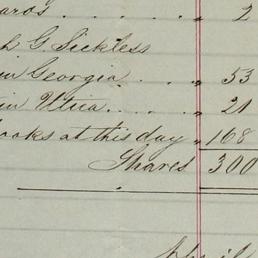 ards . . . . . . . . " 2
h G Sickless
in Georgia . . . " 53
tin Utica . . . . . " 21
ooks at this day " 168
Shares 300
April